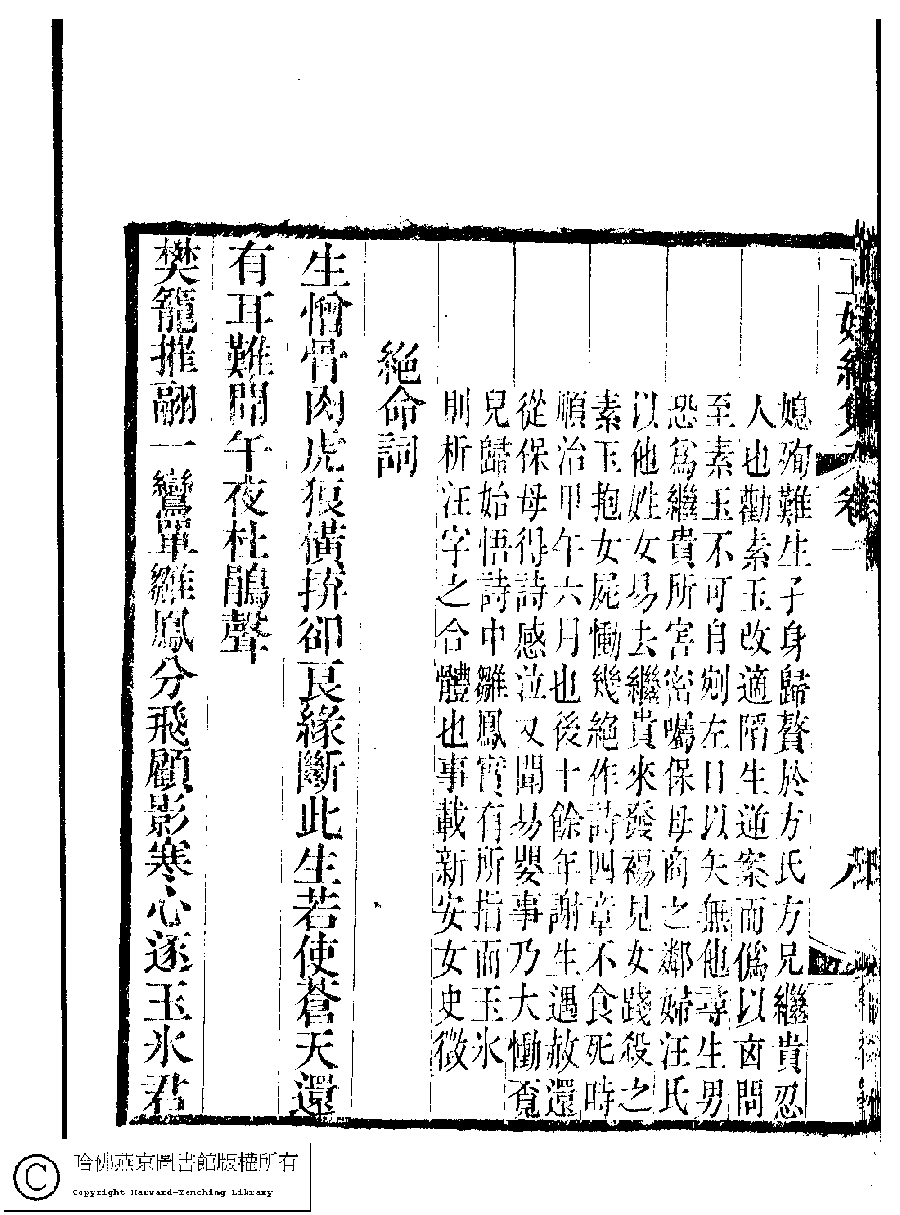 媳殉難生子身歸贅於方氏方兄繼貴忍
人也勸素玉改適陷生逆案而僞以㐫問
至素玉不可自剜左目以矢無他尋生男
恐爲繼貴所害密囑保母商之鄰婦汪氏
以他姓女易去繼貴來發裼見女踐殺之
素玉抱女屍慟幾絕作詩四章不食死時
順治甲午六月也後十餘年謝生遇赦還
從保母得詩感泣又聞易嬰事乃大慟覓
兒歸始悟詩中雛鳳實有所指而玉氷
則析汪字之合體也事載新安女史徵
絕命詞
生憎骨肉虎狼橫拚卻良緣斷此生若使蒼天還
有耳難聞午夜杜鵑聲
樊籠摧翮一鸞單雛鳳分飛顧影寒心逐玉氷君
哈佛燕京圖書館版權所有
Copyright Harvard-Yenching Library